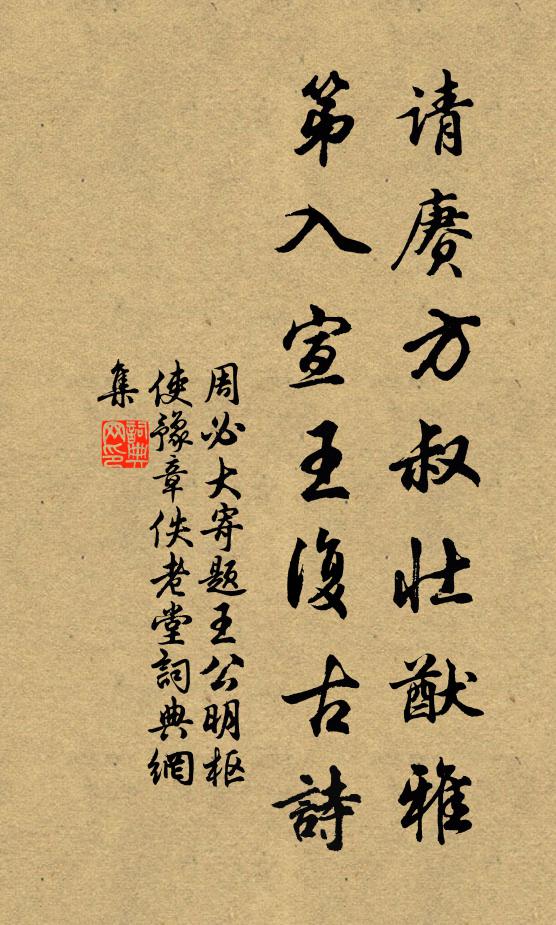 请赓方叔壮猷雅
第入宣王复古詩
周必大寄题王公明枢
使豫章佚老堂詞典網
集
詞典網印